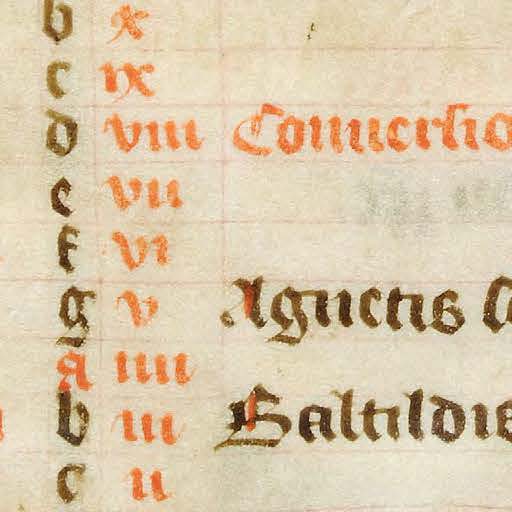 b x
c ix
d viii Conuersio
e vii
f vi
g v Agnetis
a iiii
b iii Baltildis
c ii